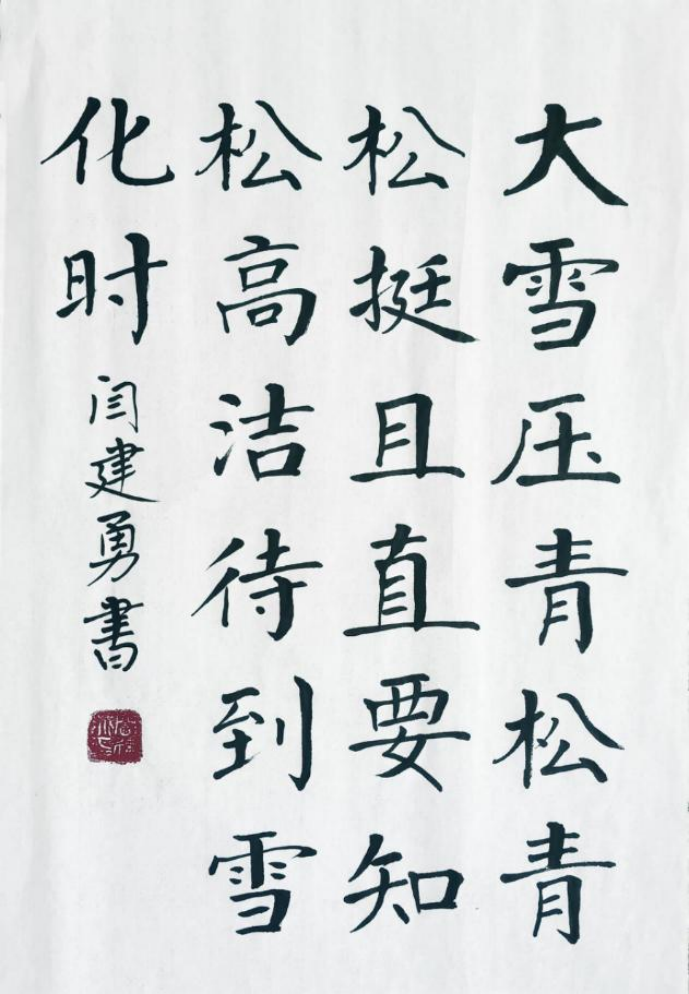 大雪压青松青
松挺且直要知
松高洁待到雪
化时
闫建勇書